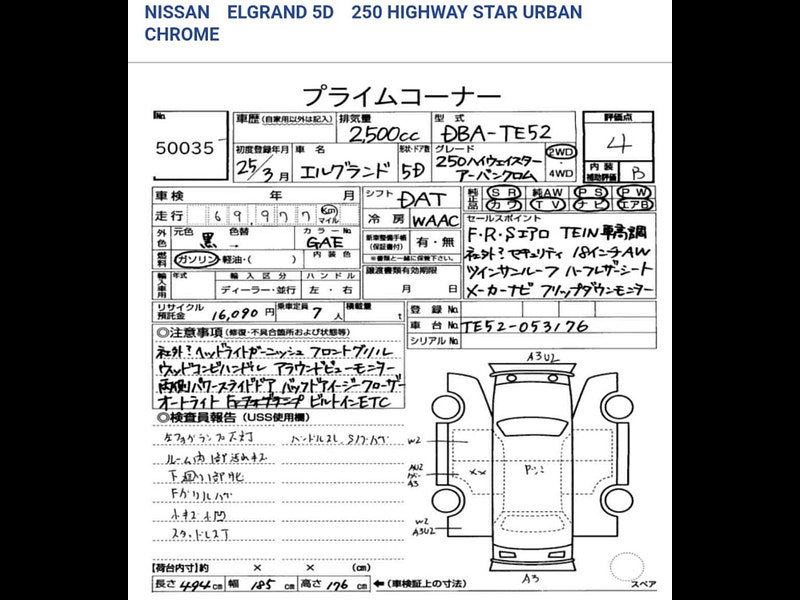 NISSAN ELGRAND 5D 250 HIGHWAY STAR URBAN
CHROME
プライムコーナー
No. 50035
車歴 (自家用以外は記入)
排気量 2,500cc
型式 DBA-TE52
評価点 4
内装補助評価 B
初度登録年月 25/3月
車名 エルグランド
形状・ドア数 5D
グレード 250ハイウェイスター
アーバンクロム
2WD 4WD
車検 年 月
シフト DAT
純正品 SR 純AW PS PW
カワ TV ナビ エアB
走行 69,977 Km マイル
冷房 WAAC
セールスポイント
F・R・Sエアロ TEIN車高調
社外?セキュリティ 18インチAW
ツインサンルーフ ハーフレザーシート
メーカーナビ フリップダウンモニター
外色 元色 黒 色替 →
カラーNo. GAE
内装色
新車整備手帳(保証書付) 有・無
※書類と一緒に保管下さい。
燃料 ガソリン 軽油・( )
譲渡書類有効期限
月 日
輸入車用 年式 輸入区分 ハンドル
ディーラー・並行 左・右
リサイクル預託金 16,090円
乗車定員 7人
積載量 t
登録No.
車台No. TE52-053176
シリアルNo.
◎注意事項 (修復・不具合箇所および状態等)
社外?ヘッドライトガーニッシュ フロントグリル
ウッドコンビハンドル アラウンドビューモニター
両側パワースライドドア バックドアイージークローザー
オートライト ビルトインETC
◎検査員報告 (USS使用欄)
ルーム内
Fグリルハゲ
小キズ 小凹
スタッドレス
A3U2
W2
A3
W2
A3U2
XX
A3
スペア
【荷台内寸】約 × × (cm)
長さ 494cm 幅 185cm 高さ 176cm ←(車検証上の寸法)